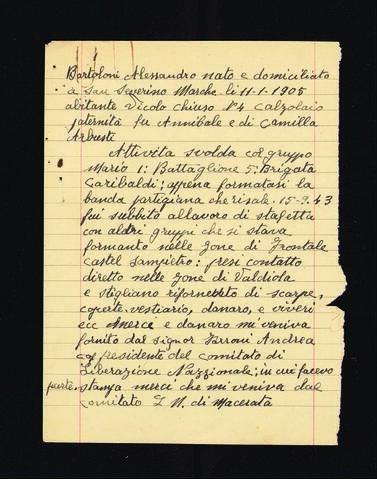 Bartoloni Alessandro nato e domiciliato
a San Severino Marche li 11-1-1905
abitante Vicolo Chiuso N°4 Calzolaio
paternità fu Annibale e di Camilla
Arbuste
Attivita svolda col gruppo
Mario 1: Battaglione 5: Brigata
Garibaldi; appena formatasi la
banda partigiana che risale. 15-9.43
fui subbito allavoro di stafetta
con aldri gruppi che si stava
formanto nelle zone di Frontale
Castel Sampietro: presi contatto
diretto nelle zone di Valdiola
e Stigliano rifornendolo di scarpe,
coperte, vestiario, danaro, e viveri
ecc Merce e danaro mi veniva
fornito dal Signor Farroni Andrea
col presidente del comitato di
Liberazione Nazzionale; in cui facevo
parte. stanza merci che mi veniva dal
Comitato L N. di Macerata